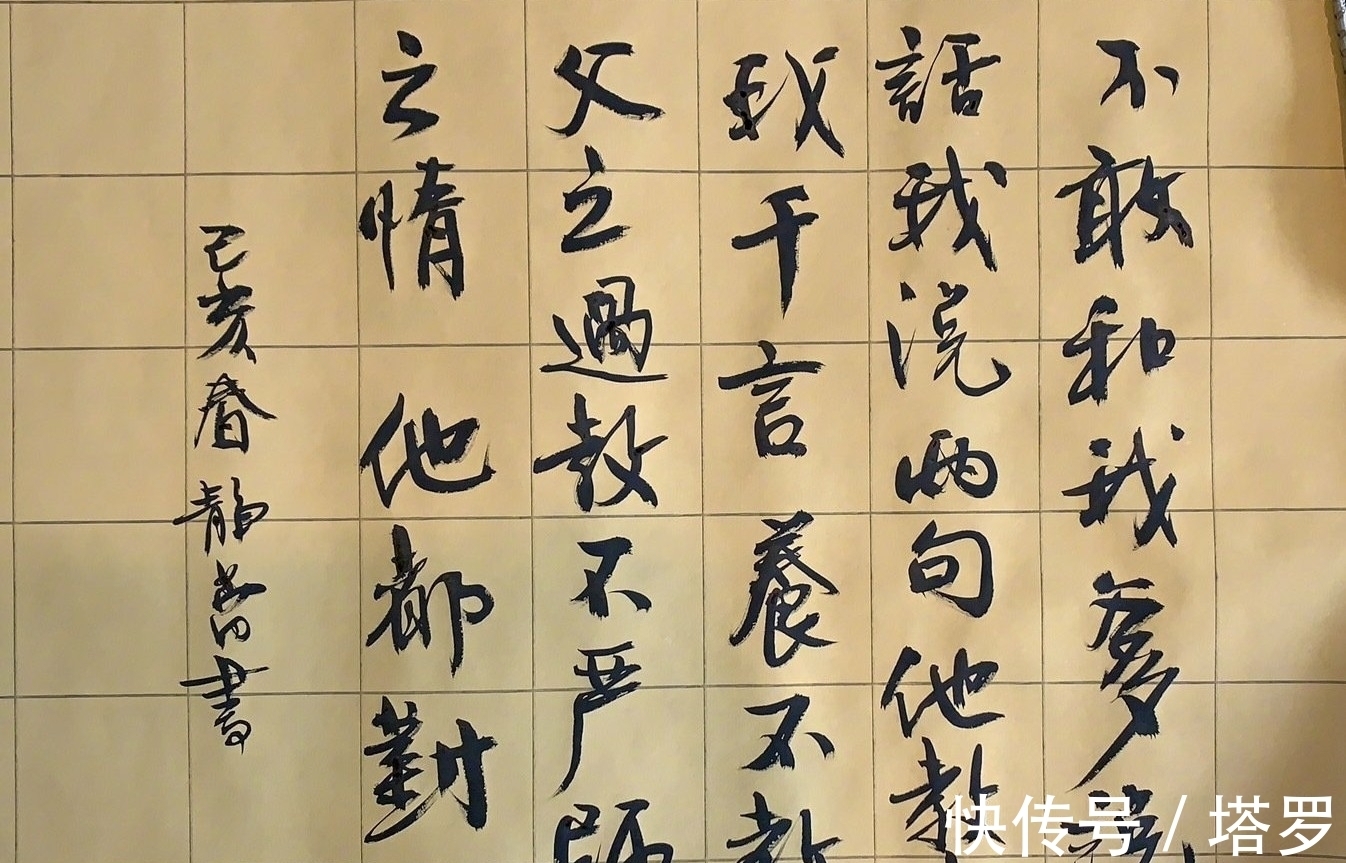 不敢和我爹說
話我说兩句他教
我千言養不教
父之過教不严師
之惰他都對
己亥春静书
快传号 / 塔罗